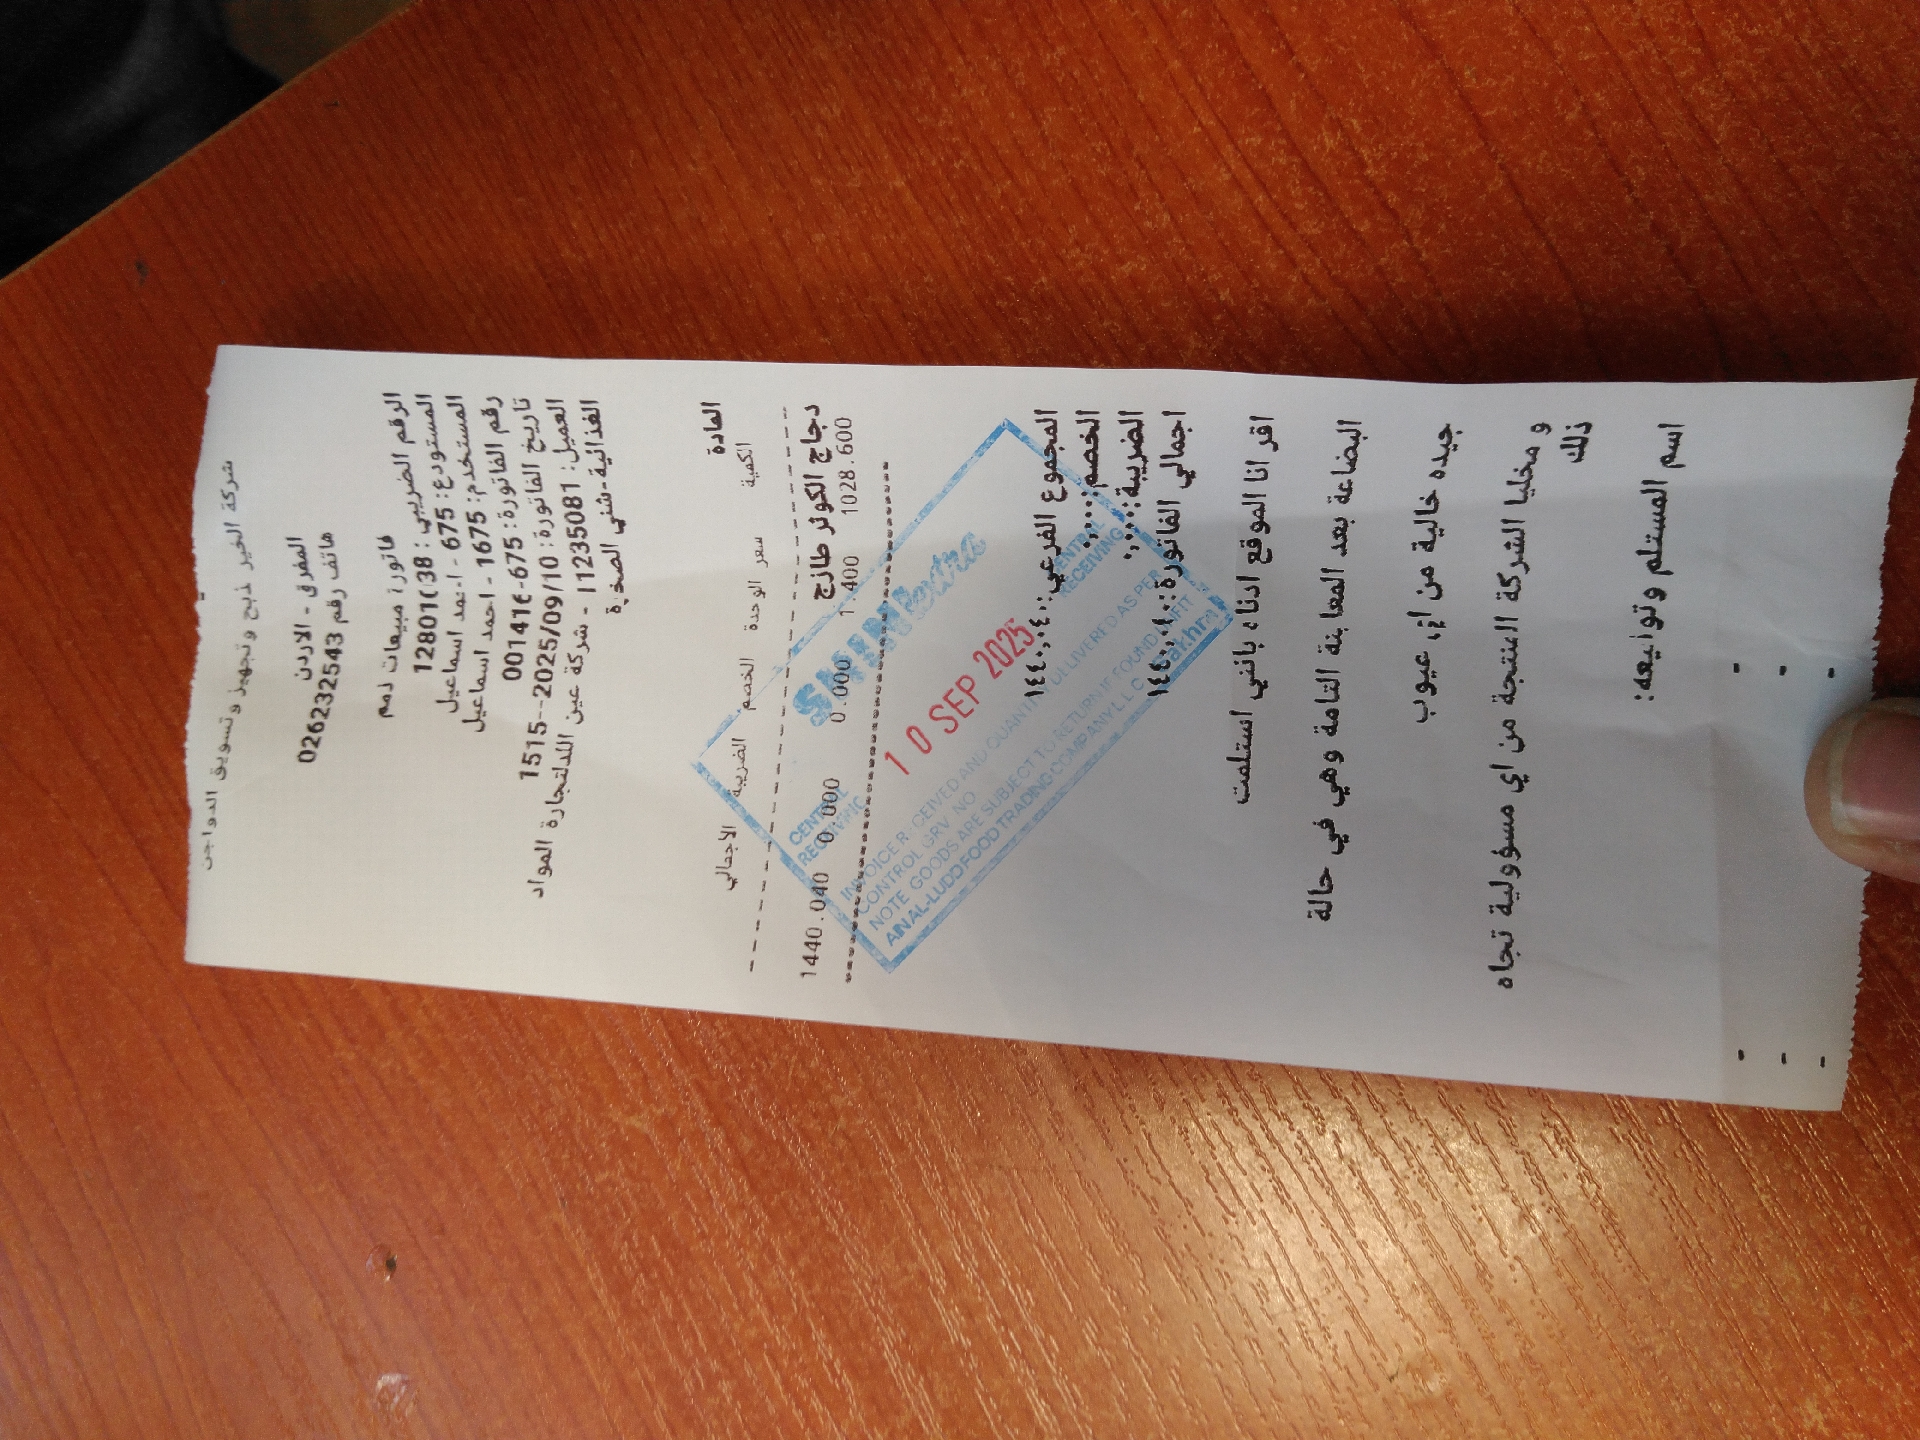 شركة الخير لذبح وتجهيز وتسويق الدواجن
المفرق - الاردن
هاتف رقم 026232543
فاتورة مبيعات ذمم
الرقم الضريبي :
المستودع: 675 - احمد اسماعيل
المستخدم: 1675 - احمد اسماعيل
رقم الفاتورة:
تاريخ الفاتورة: 2025/09/10--1515
العميل: 11235081 - شركة عين اللدلتجارة المواد
الغذائية-شني الصخرة
المادة
الكمية سعر الوحدة الخصم الضريبة الاجمالي
دجاج الكوثر طازج
1028.600 1.400 0.000 0.000 1440.040
المجموع الفرعي: ١٤٤٠,٠٤٠
الخصم: ٠,٠٠٠
الضريبة: ٠,٠٠٠
اجمالي الفاتورة: ١٤٤٠,٠٤٠
اقر انا الموقع ادناه بانني استلمت
البضاعة بعد المعاينة التامة وهي في حالة
جيده خالية من اي عيوب
و مخليا الشركة المنتجة من اي مسؤولية تجاه
ذلك
اسم المستلم وتوقيعه:
CENTRAL
RECEIVING
10 SEP 2025
CENTRAL
RECEIVING
INVOICE RECEIVED AND QUANTITY DELIVERED AS PER
CONTROL GRV. NO
NOTE GOODS ARE SUBJECT TO RETURN IF FOUND UNFIT
AIN AL-LUDD FOOD TRADING COMPANY L.L.C